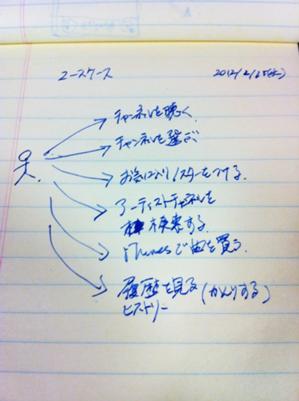 ユースケース 2012/2/15(水)
チャンネルを聴く
チャンネルを選ぶ
お気に入り/スターをつける
アーティストチャンネルを
検索する
iTunesで曲を買う
履歴を見る(かんりする)
ヒストリー